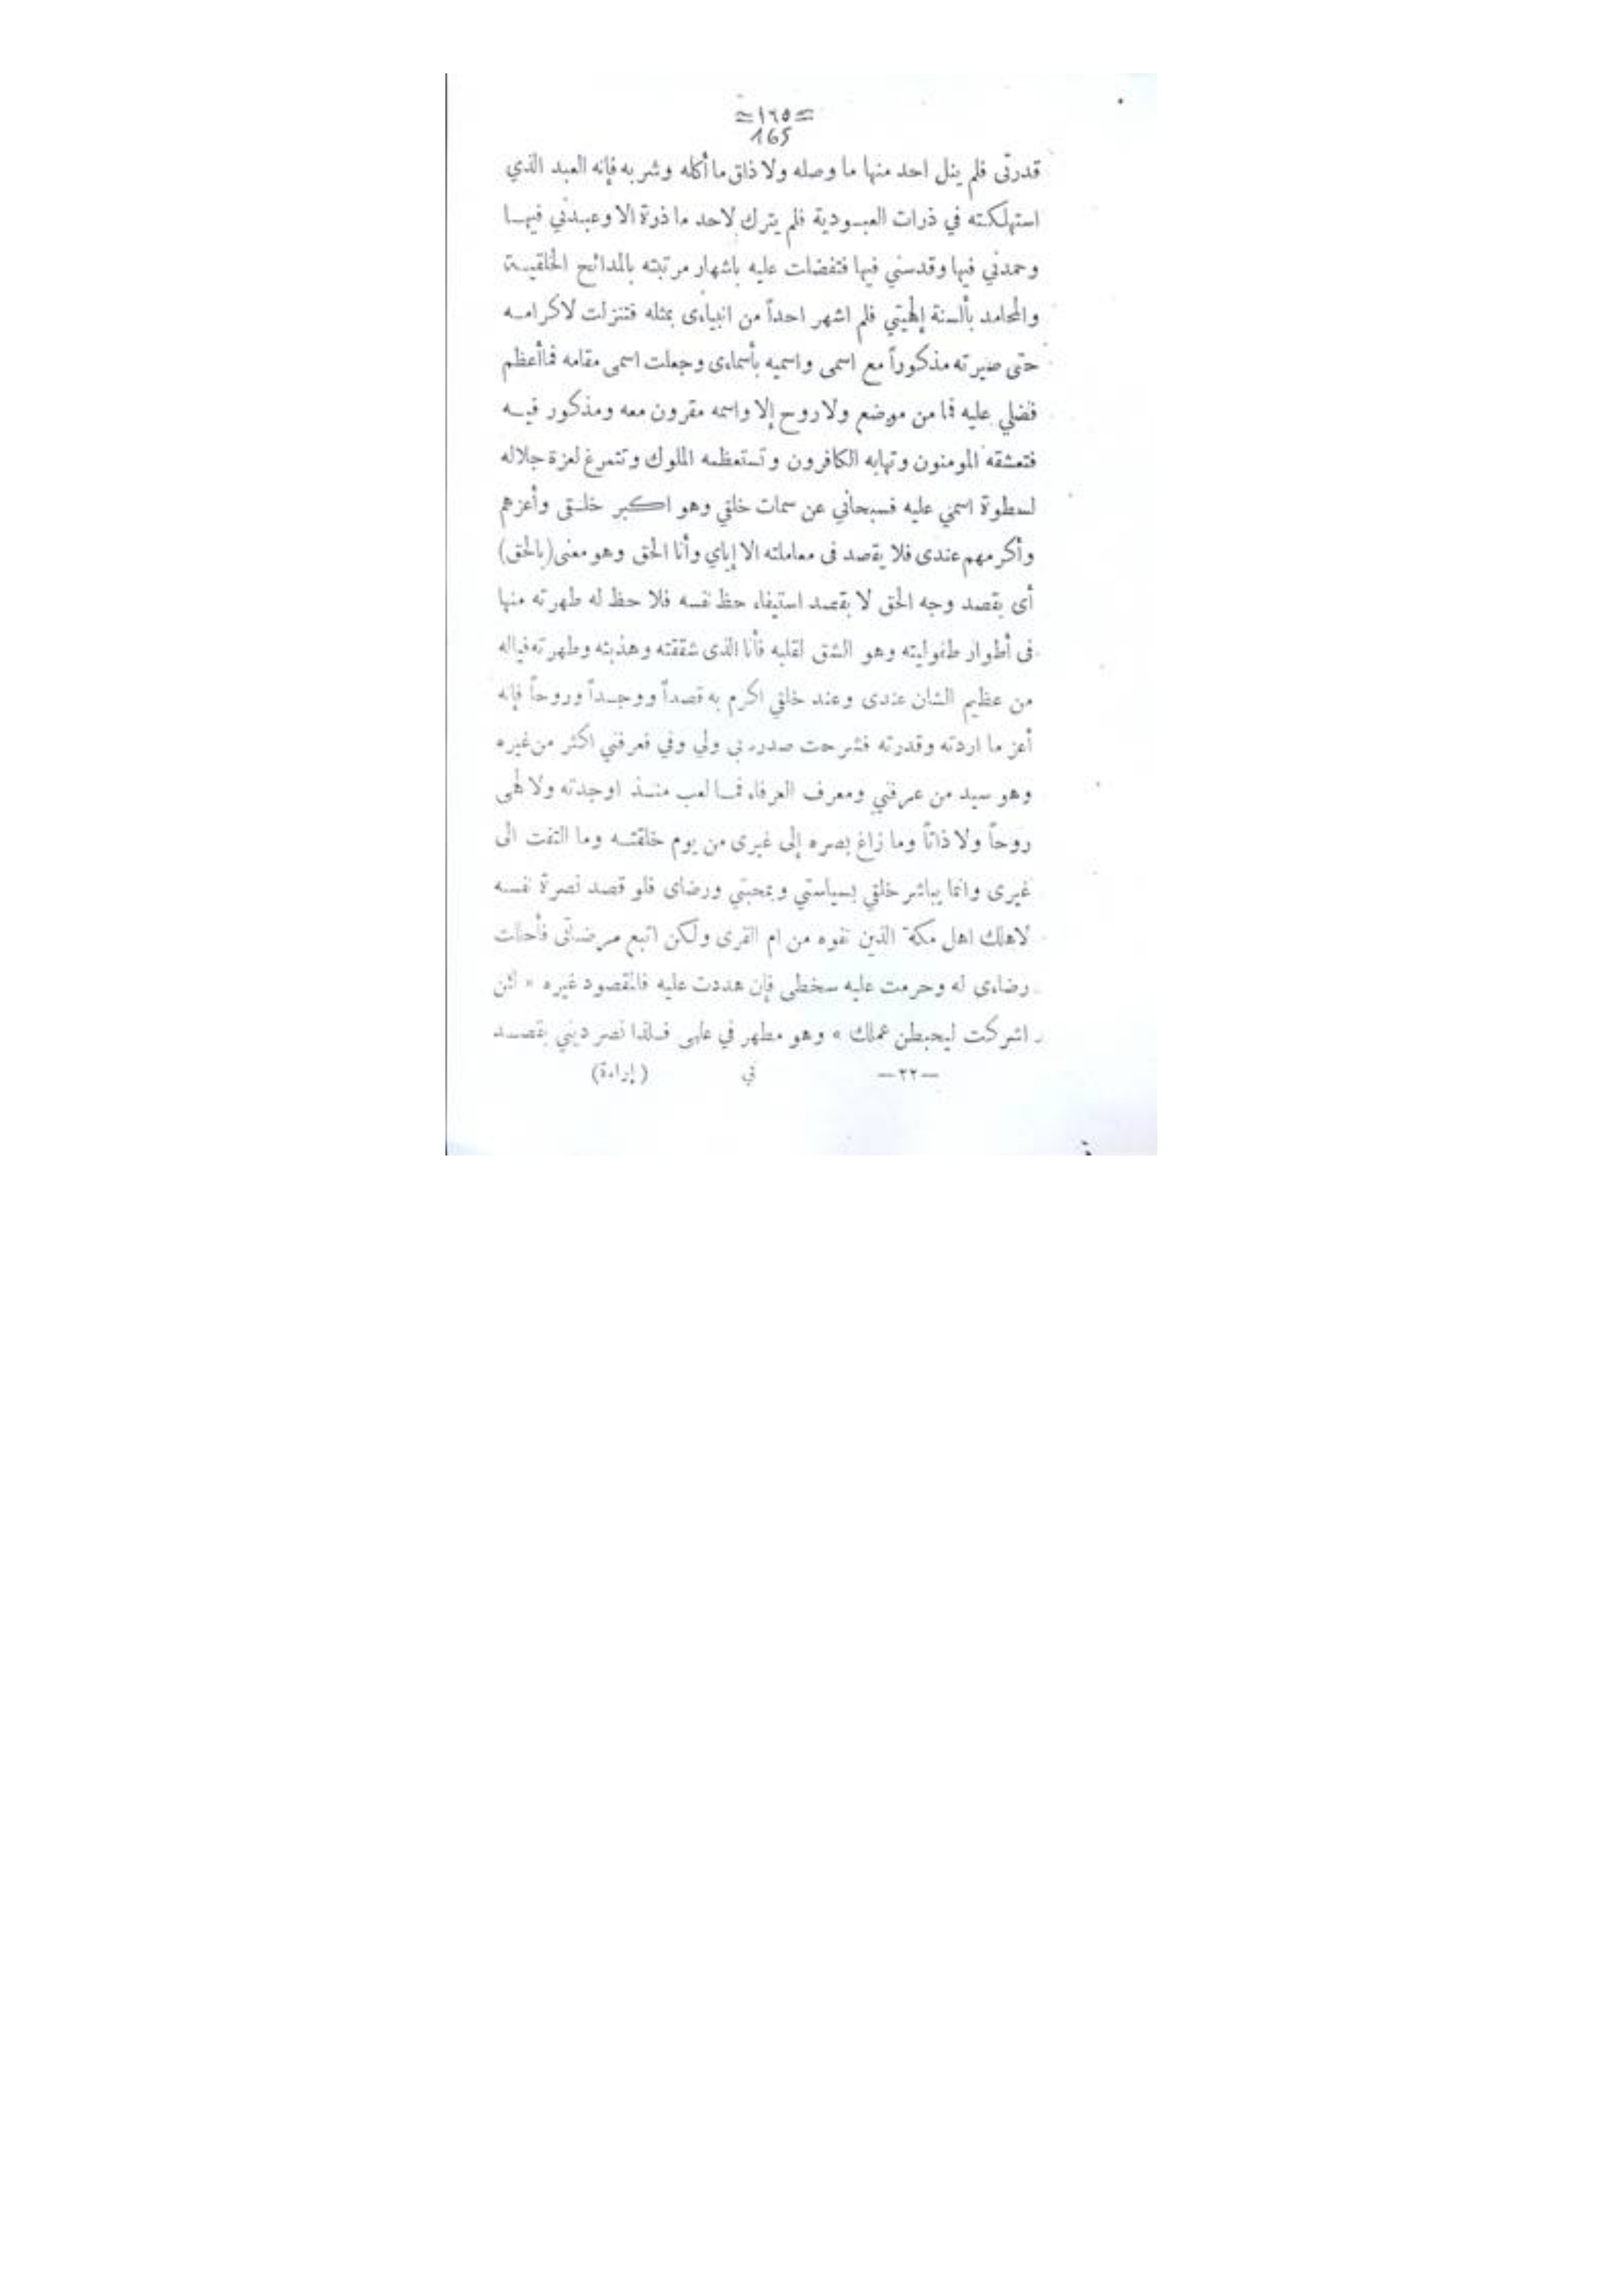 =١٦٥=
165
قدرتى فلم ينل احد منها ما وصله ولا ذاق ما أكله وشربه فإنه العبد الذي
استهلكته في ذرات العبودية فلم يترك لاحد ما ذرة الا وعبدني فيها
وحمدني فيها وقدسني فيها فتفضلت عليه باشهار مرتبته بالمدائح الخلقية
والمحامد بألسنة إلهيتي فلم اشهر احداً من انبياءى بمثله فتنزلت لاكرامه
حتى صيرته مذكوراً مع اسمى واسميه بأسماءى وجعلت اسمى مقامه فماأعظم
فضلي عليه فما من موضع ولا روح إلا واسمه مقرون معه ومذكور فيه
فتعشقه المومنون وتهابه الكافرون وتستعظمه الملوك وتتمرغ لعزة جلاله
لسطوة اسمي عليه فسبحاني عن سمات خلقي وهو اكبر خلقى وأعزهم
وأكرمهم عندى فلا يقصد فى معاملته الا إياي وأنا الحق وهو معنى (بالحق)
أى يقصد وجه الحق لا بقصد استيفاء حظ نفسه فلا حظ له طهرته منها
فى أطوار طفوليته وهو الشق لقلبه فأنا الذى شققته وهذبته وطهرته فياله
من عظيم الشان عندى وعند خلقي اكرم به قصداً ووجداً وروحاً فإنه
أعز ما اردته وقدرته فشرحت صدره بى ولي وفي فعرفني اكثر من غيره
وهو سيد من عرفني ومعرف العرفاء فما لعب منذ اوجدته ولا لهى
روحاً ولا ذاتاً وما زاغ بصره إلى غيرى من يوم خلقته وما التفت الى
غيرى وانما يباشر خلقي بسياستي وبمحبتي ورضاى فلو قصد نصرة نفسه
لاهلك اهل مكة الذين نفوه من ام القرى ولكن اتبع مرضاتى فأحللت
رضاءى له وحرمت عليه سخطى فإن هددت عليه فالمقصود غيره « لئن
اشركت ليحبطن عملك » وهو مطهر في علمى فلذا نصر ديني بقصد
—٢٢— في (إراءة)